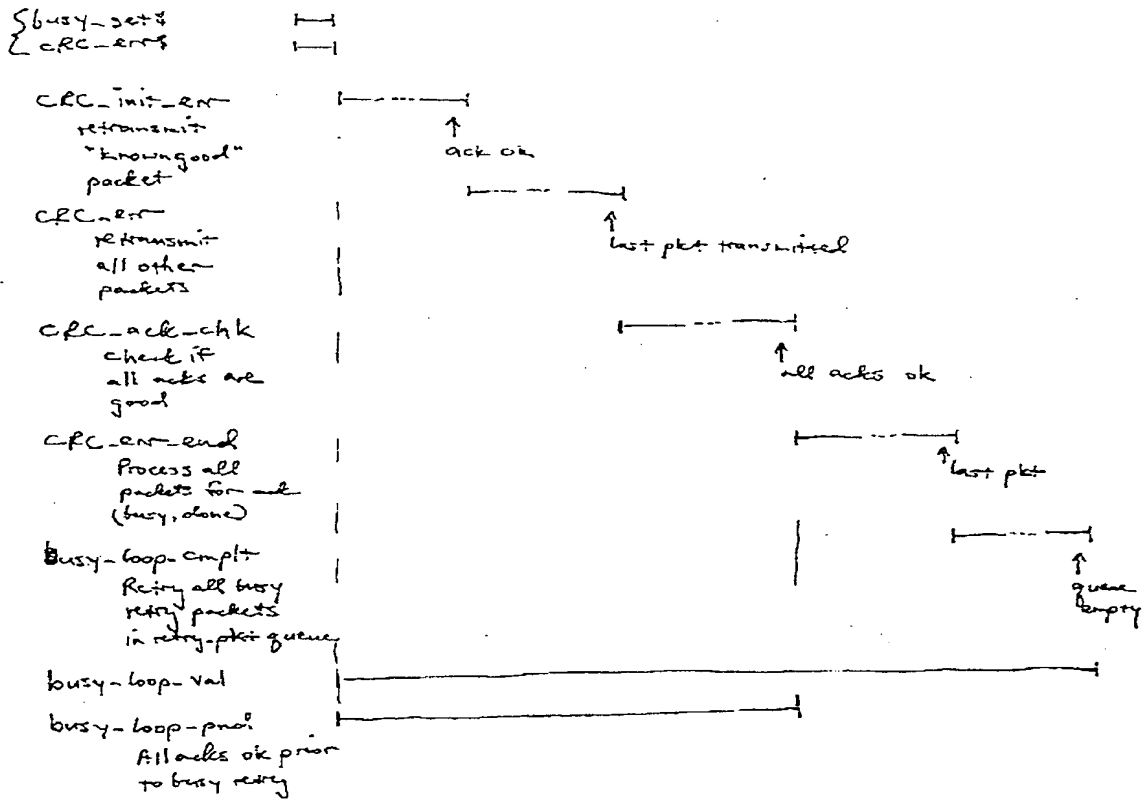 busy_set$
CRC_err$
CRC_init_err
retransmit
"known good"
packet
ack ok
CRC_err
retransmit
all other
packets
last pkt transmitted
CRC_ack_chk
check if
all acks are
good
all acks ok
CRC_err_end
Process all
packets for ack
(busy, done)
last pkt
busy-loop-cmplt
Retry all busy
retry packets
in retry-pkt queue
queue
empty
busy-loop-val
All acks ok prior
to busy retry